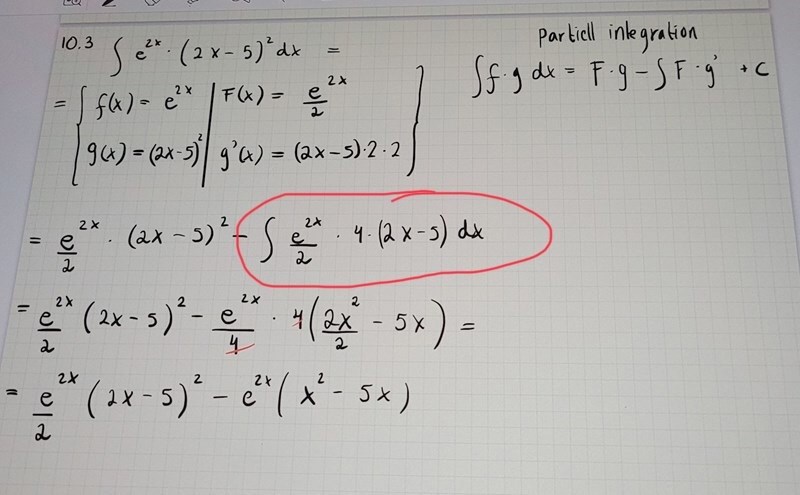 10.3 ∫ e^{2x} · (2x − 5)² dx =
Partiell integration
∫ f · g dx = F · g − ∫ F · g' + C
= [ f(x) = e^{2x} | F(x) = e^{2x}/2
g(x) = (2x-5)² | g'(x) = (2x−5)·2·2 ]
= e^{2x}/2 · (2x − 5)² − ∫ e^{2x}/2 · 4 · (2x−5) dx
= e^{2x}/2 (2x − 5)² − e^{2x}/4 · 4 (2x²/2 − 5x) =
= e^{2x}/2 (2x − 5)² − e^{2x} (x² − 5x)